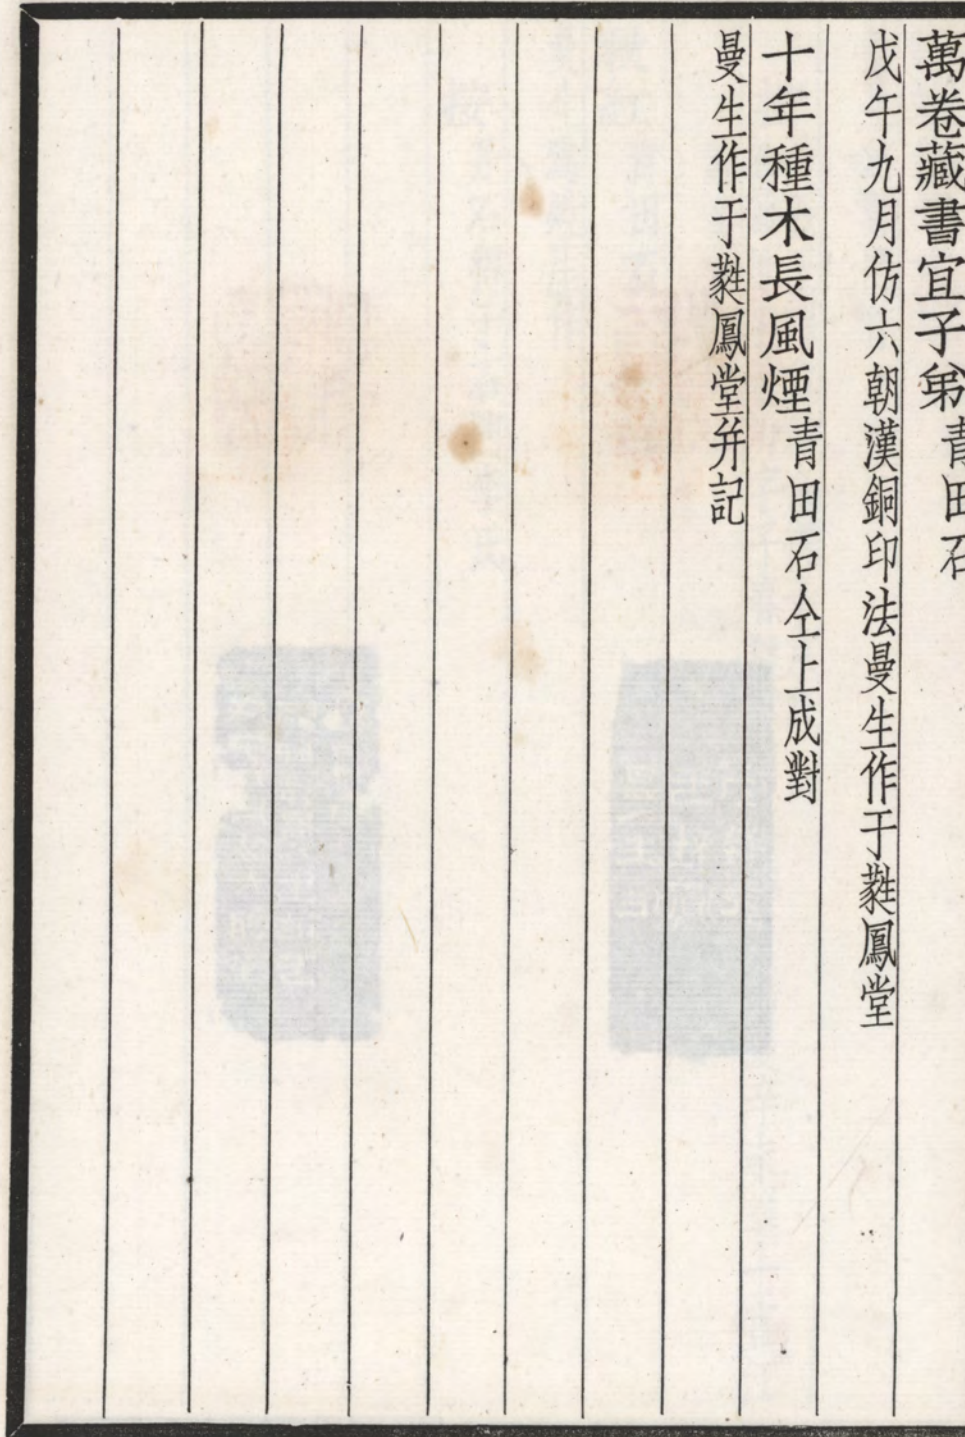 萬卷藏書宜子弟青田石
戊午九月仿六朝漢銅印法曼生作于蕤鳳堂
十年種木長風煙青田石仝上成對
曼生作于蕤鳳堂并記